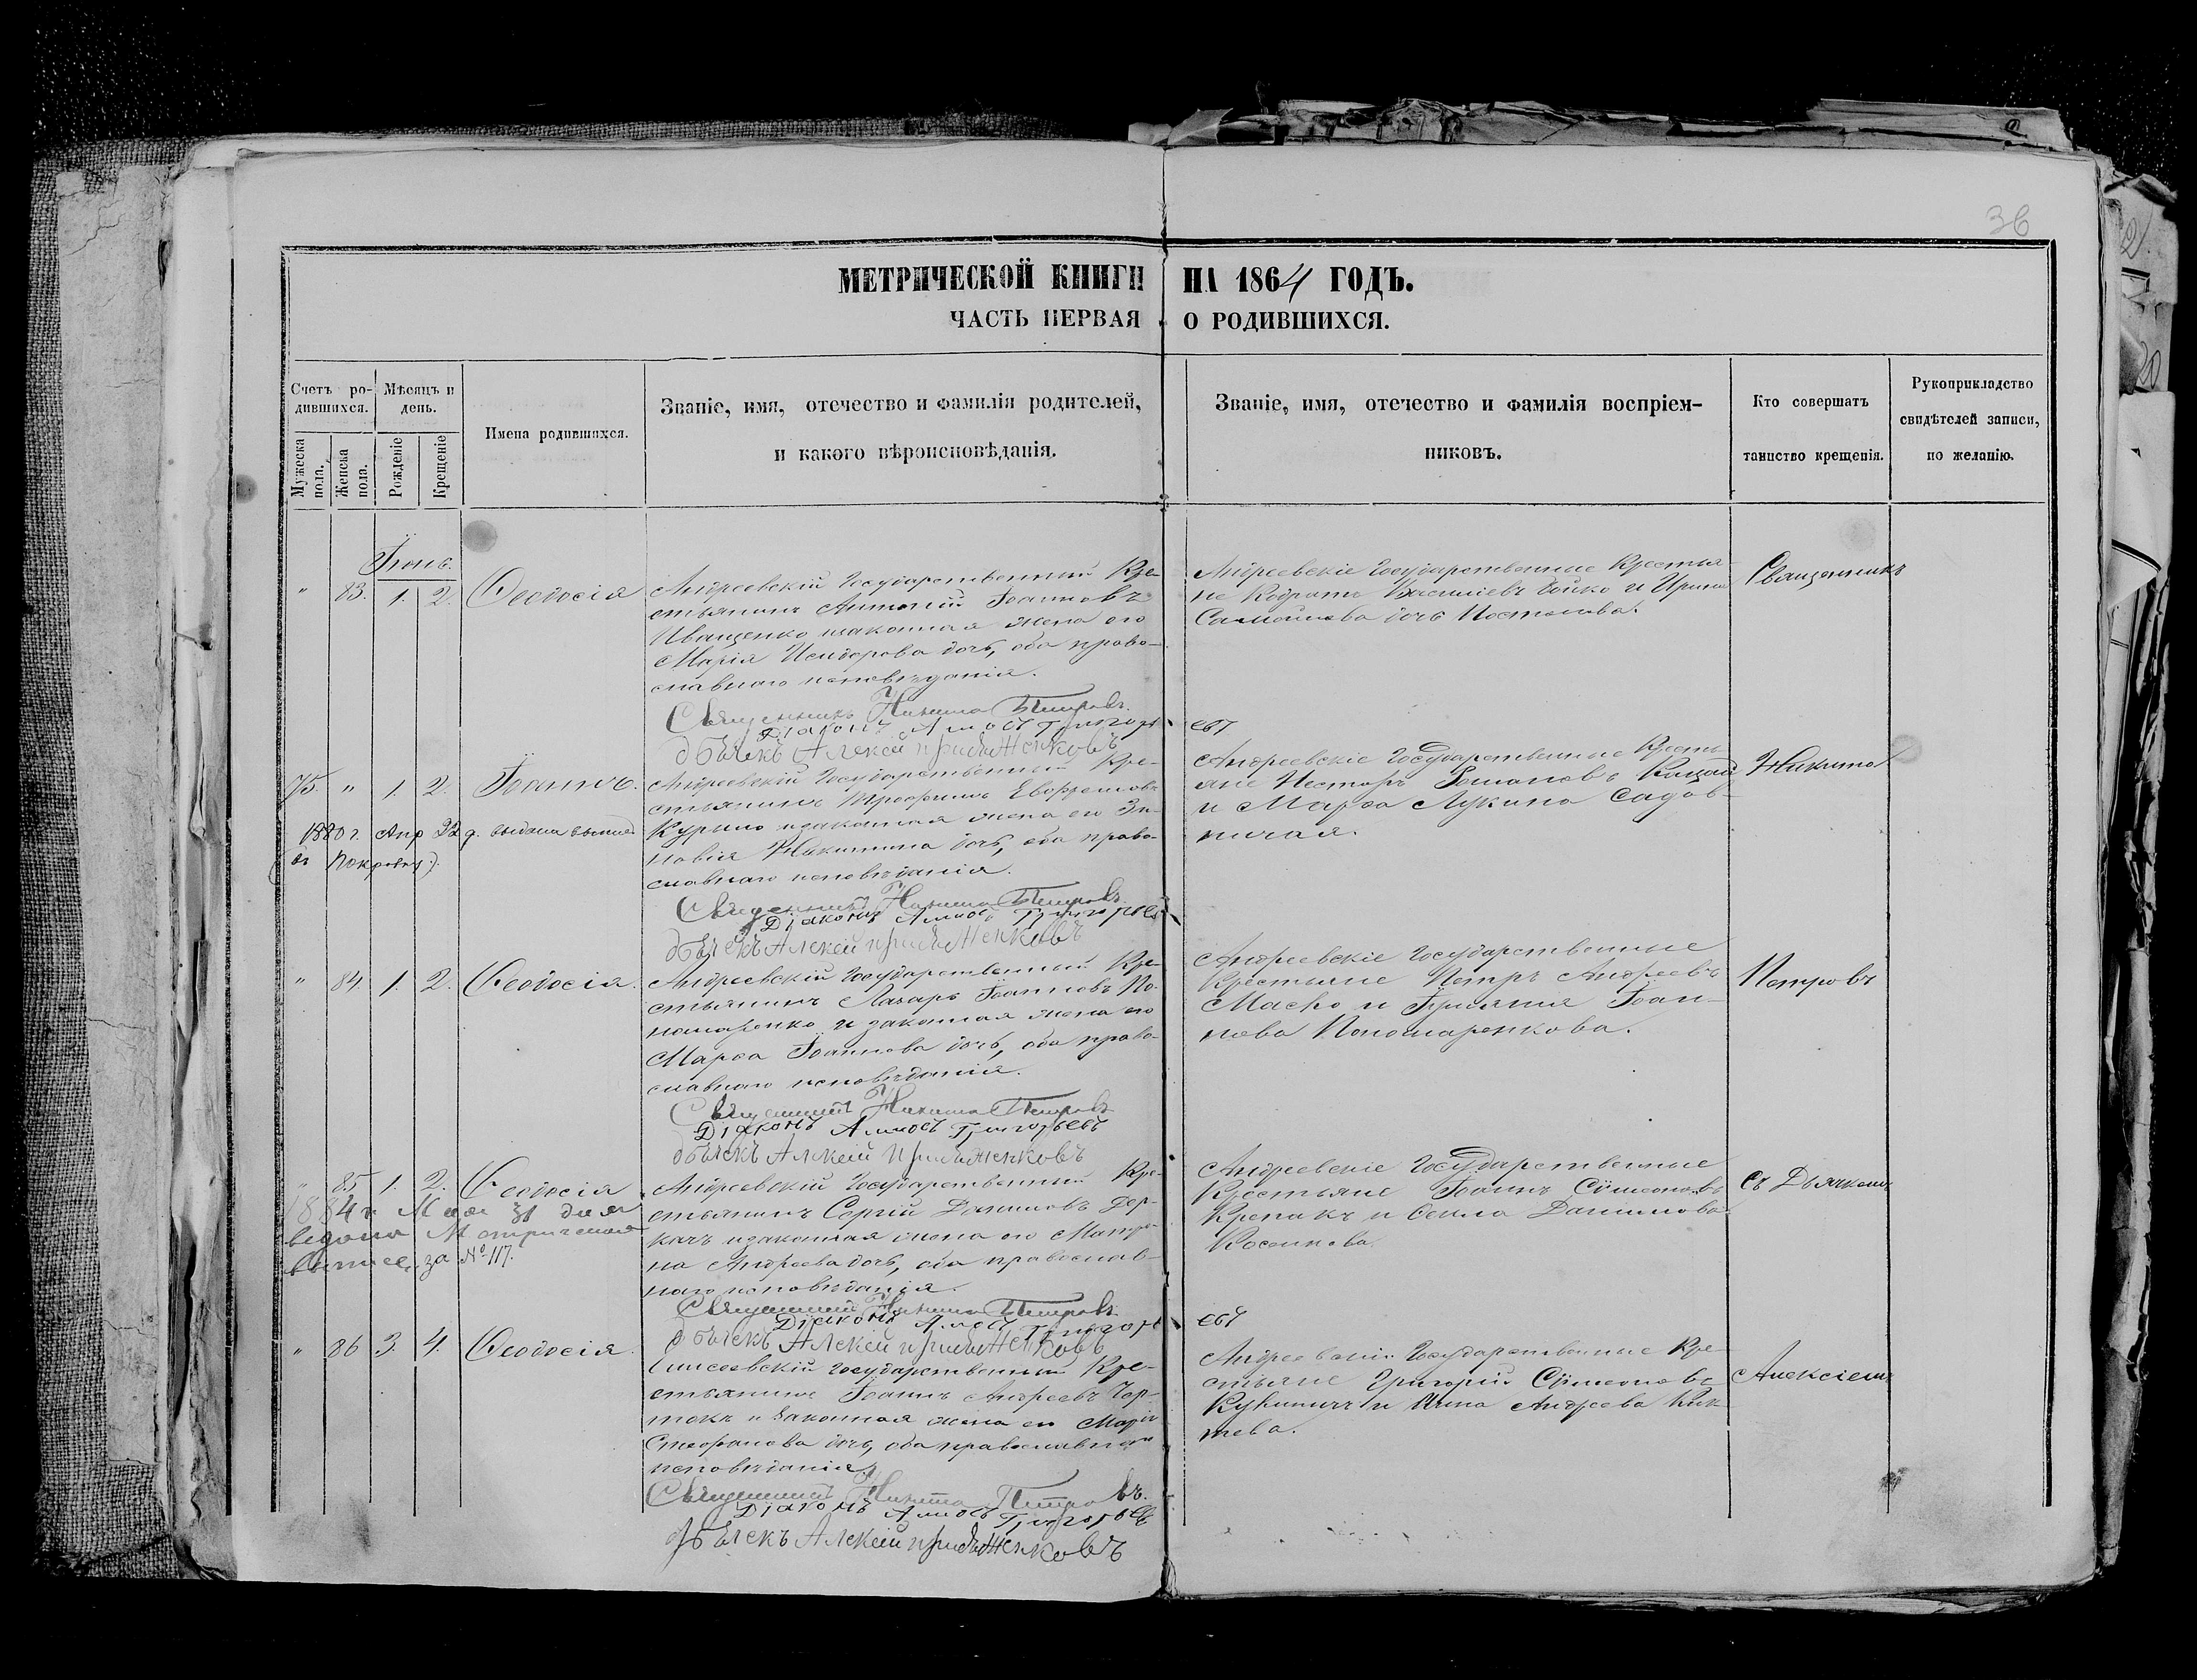 36
МЕТРИЧЕСКОЙ КНИГИ НА 1864 ГОДЪ.
ЧАСТЬ ПЕРВАЯ О РОДИВШИХСЯ.
Счетъ ро-
дившихся.
Мужеска
пола.
Женска
пола.
Мѣсяцъ и
день.
Рожденіе
Крещеніе
Имена родившихся.
Званіе, имя, отечество и фамилія родителей,
и какого вѣроисповѣданія.
Званіе, имя, отечество и фамилія воспріем-
никовъ.
Кто совершатъ
таинство крещенія.
Рукоприкладство
свидѣтелей записи,
по желанію.
Іюнь.
" 83. 1. 2. Ѳеодосія
Андреевскій Государственный Кре-
стьянинъ Антоній Іоанновъ
Иващенко изаконная жена его
Марія Исидорова дочь, оба право-
славнаго исповѣданія.
Священникъ Никита Петровъ.
Діаконъ Амосъ Григорьевъ
дьячекъ Алексій
Андреевскіе Государственные Крестья-
не Кодратъ Василіевъ Бойко и Ирина
Самойлова дочь
Священникъ
75. " 1. 2. Іоаннъ.
1880 г. Апр 22 д. выдана
Андреевскій Государственный Кре-
стьянинъ Трофимъ
изаконная жена его Зи-
новія Никитина дочь, оба право-
славнаго исповѣданія.
Священникъ Никита Петровъ
Діаконъ Амосъ Григорьевъ
дьячекъ Алексій
Андреевскіе Государственные Кресть-
яне Несторъ Романовъ
и Марѳа Лукина Садов-
ничая.
Никита
" 84. 1. 2. Ѳеодосія.
Андреевскій Государственный Кре-
стьянинъ Лазарь Іоанновъ По-
номаренко и законная жена его
Марѳа Іоаннова дочь, оба право-
славнаго исповѣданія.
Священникъ Никита Петровъ
Діаконъ Амосъ Григорьевъ
дьячекъ Алексій
Андреевскіе Государственные
Крестьяне Петръ Андреевъ
Масько и Іуліянія Іоан-
нова Пономаренкова.
Петровъ
" 85 1. 2. Ѳеодосія
1884 г. Мая 31 дня
выдана Метрическая
за №117.
Андреевскій Государственный Кре-
стьянинъ Сергій Даниловъ Дер-
качъ изаконная жена его Матро-
на Андреева дочь, оба православ-
наго исповѣданія.
Священникъ Никита Петровъ
Діаконъ Амосъ Григорьевъ
дьячекъ Алексій
Андреевскіе Государственные
Крестьяне Іоаннъ Сѵмеоновъ
и Ѳекла Данилова
Косенкова.
съ Дьячкомъ
" 86 3. 4. Ѳеодосія.
Государственный Кре-
стьянинъ Іоаннъ Андреевъ Чор-
токъ и законная жена его Марія
Стефанова дочь, оба православнаго
исповѣданія.
Священникъ Никита Петровъ.
Діаконъ Амосъ Григорьевъ
дьячекъ Алексій
Андреевскіе Государственные Кре-
стьяне Григорій Сѵмеоновъ
и Анна Андреева
Алексіемъ